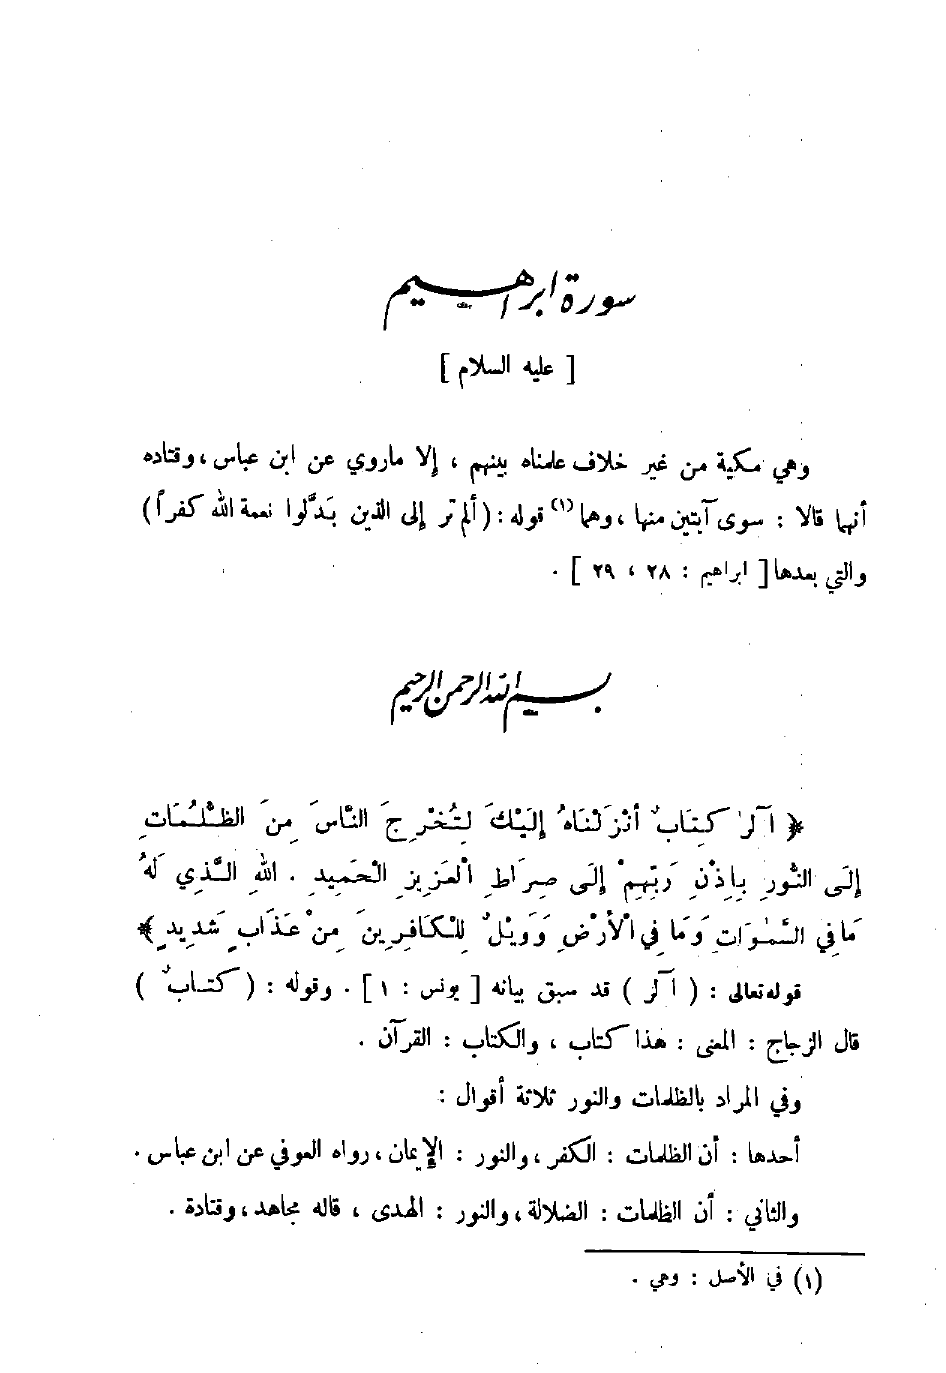 سورة ابراهيم
[ عليه السلام ]
وهي مكية من غير خلاف علمناه بينهم ، إلا ماروي عن ابن عباس ، وقتاده
أنهما قالا : سوى آيتين منها ، وهما (١) قوله : ( ألم تر إلى الذين بَدَّلوا نعمة الله كفراً )
والتي بعدها [ ابراهيم : ٢٨ ، ٢٩ ] .
بسم الله الرحمن الرحيم
﴿ آلر كِتَابٌ أنْزَلْنَاهُ إلَيْكَ لِتُخْرِجَ النَّاسَ مِنَ الظُّلُمَاتِ
إلَى النُّورِ بِإِذْنِ رَبِّهِمْ إلَى صِرَاطِ الْعَزِيزِ الْحَمِيدِ . اللهِ الَّذِي لَهُ
مَا فِي السَّمٰوَاتِ وَمَا فِي الْأَرْضِ وَوَيْلٌ لِلْكَافِرِينَ مِنْ عَذَابٍ شَدِيدٍ ﴾
قوله تعالى : ( آلر ) قد سبق بيانه [ يونس : ١ ] . وقوله : ( كتابٌ )
قال الزجاج : المعنى : هذا كتاب ، والكتاب : القرآن .
وفي المراد بالظلمات والنور ثلاثة أقوال :
أحدها : أن الظلمات : الكفر ، والنور : الإيمان ، رواه العوفي عن ابن عباس .
والثاني : أن الظلمات : الضلالة ، والنور : الهدى ، قاله مجاهد ، وقتادة .
(١) في الأصل : وهي .